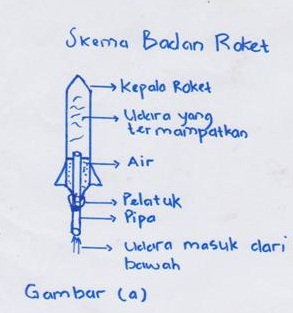 Skema Badan Roket
Kepala Roket
Udara yang
termampatkan
Air
Pelatuk
Pipa
Udara masuk dari
bawah
Gambar (a)